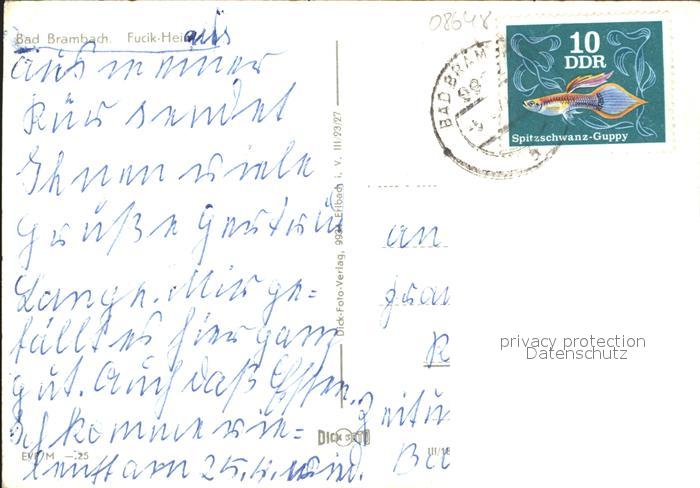 Bad Brambach. Fucik-Heim
aus
aus meiner
Kur sendet
Ihnen viele
Grüße Gertrud
Lange. Mir ge=
fällt es hier ganz
gut. Auch daß Essen.
Ich komme
am 25.4.
EVP/M —.25
Dick-Foto-Verlag, 9931 Erlbach i. V. III/23/27
DICK FOTO
08648
BAD BRAM
10
DDR
Spitzschwanz-Guppy
an
Frau
K
Zeitun
Ba
privacy protection
Datenschutz